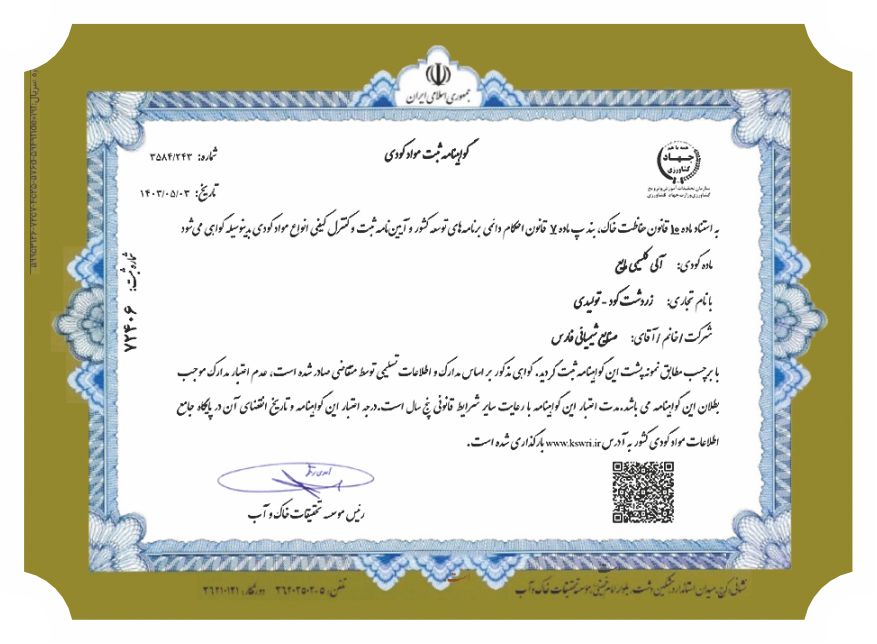 جمهوری اسلامی ایران
گواهینامه ثبت مواد کودی
شماره: ۳۵۸۴/۲۴۳
تاریخ: ۱۴۰۳/۰۵/۰۳
همه با هم
جهاد
کشاورزی
سازمان تحقیقات، آموزش و ترویج
کشاورزی وزارت جهاد کشاورزی
به استناد ماده ۱۰ قانون حفاظت خاک، بند پ ماده ۷ قانون احکام دائمی برنامه‌های توسعه کشور و آیین نامه ثبت و کنترل کیفی انواع مواد کودی بدینوسیله گواهی می‌شود
ماده کودی: آلی کلسیمی مایع
با نام تجاری: زردشت کود - تولیدی
شرکت / خانم / آقای: صنایع شیمیائی فارس
با برچسب مطابق نمونه پشت این گواهینامه ثبت گردید. گواهی مذکور بر اساس مدارک و اطلاعات تسلیمی توسط متقاضی صادر شده است، عدم اعتبار مدارک موجب
بطلان این گواهینامه می باشد. مدت اعتبار این گواهینامه با رعایت سایر شرایط قانونی پنج سال است. درجه اعتبار این گواهینامه و تاریخ انقضای آن در پایگاه جامع
اطلاعات مواد کودی کشور به آدرس www.kswri.ir بارگذاری شده است.
شماره ثبت: ۷۲۴۰۶
رئیس موسسه تحقیقات خاک و آب
نشانی: کرج، میدان استاندارد، مشکین دشت، بلوار امام خمینی، موسسه تحقیقات خاک و آب
تلفن: ۳۶۲۰۲۵۰۲-۵ دورنگار: ۳۶۲۱۰۱۲۱